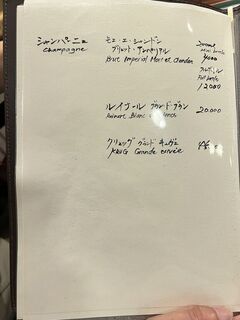 シャンパーニュ
Champagne
モエ・エ・シャンドン
ブリュット・アンペリアル
Brut Imperial Moet et Chandon
200ml
Mini bottle
4000
フルボトル
Full bottle
12000
ルイナール ブラン・ド・ブラン
Ruinart Blanc
20.000
クリュッグ グランド キュヴェ
KRUG Grande cuvée